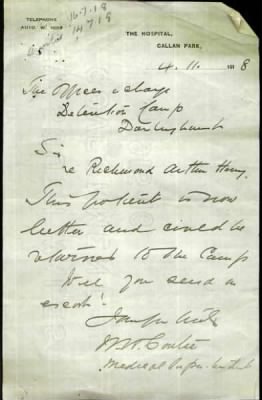 TELEPHONE
16.7.18
14.7.18
THE HOSPITAL,
CALLAN PARK,
4.11. 1918
The Officer i charge
Detention Camp
Darlinghurst
Sir
re Richmond Arthur Henry.
This patient is now
better and could be
returned to the Camp
Will you send an
escort?
Medical Superintendent